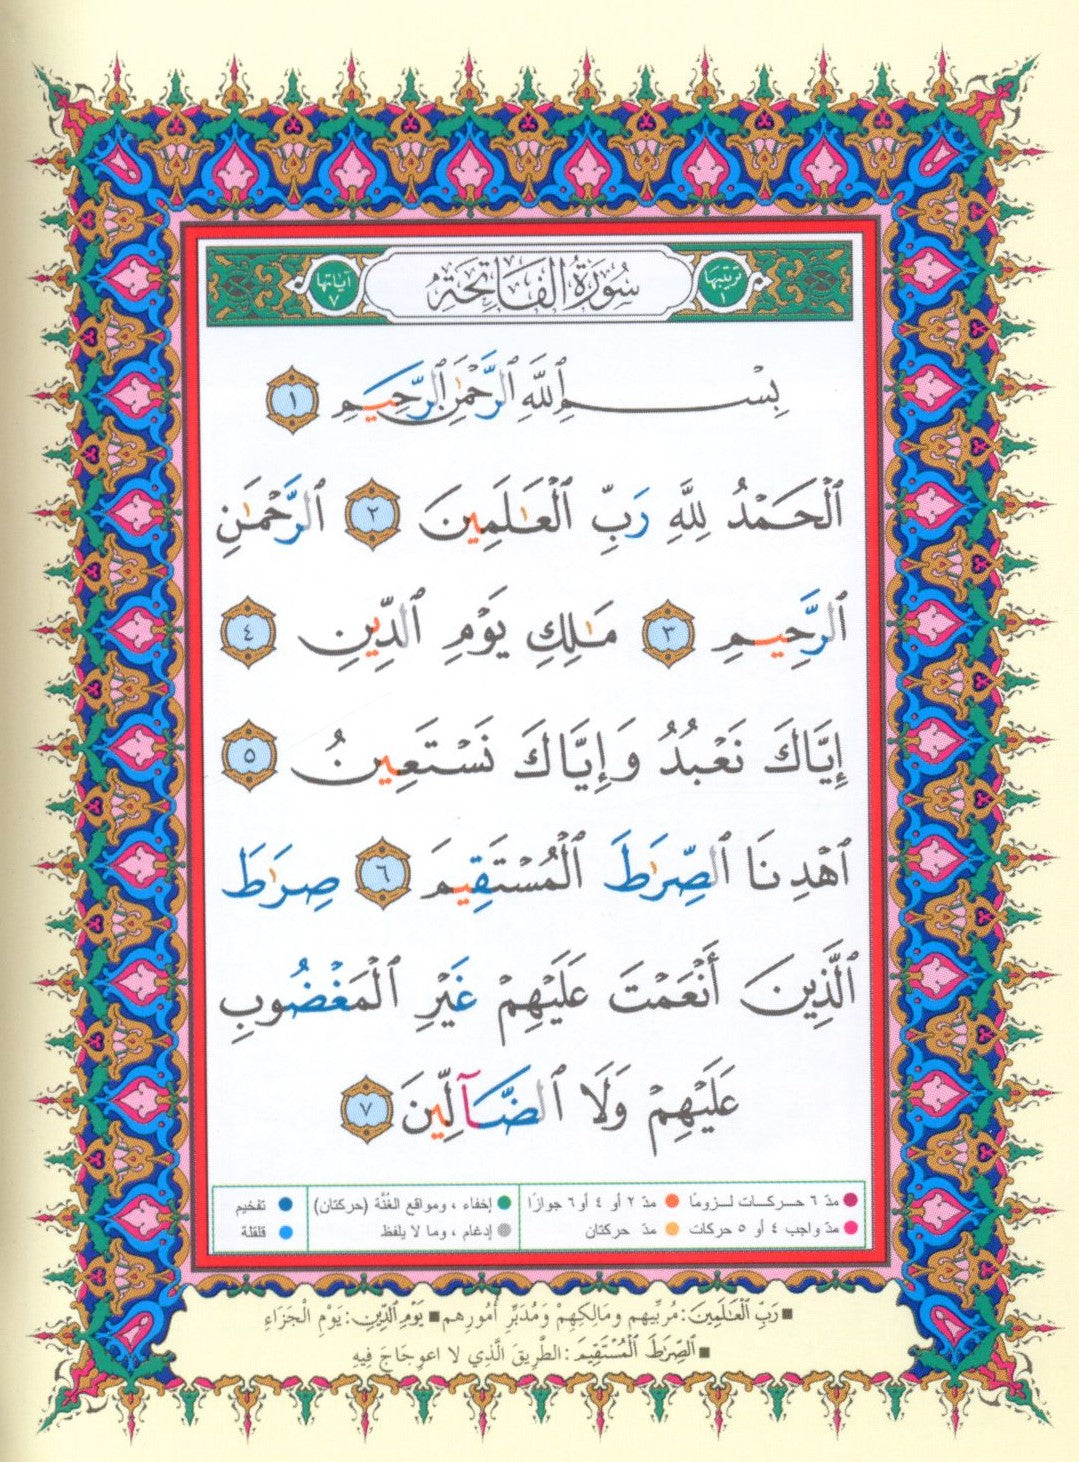 ترتيبها ١ سُورَةُ الفَاتِحَةِ آياتها ٧
بِسْمِ ٱللَّهِ ٱلرَّحْمَٰنِ ٱلرَّحِيمِ ١
ٱلْحَمْدُ لِلَّهِ رَبِّ ٱلْعَٰلَمِينَ ٢ ٱلرَّحْمَٰنِ
ٱلرَّحِيمِ ٣ مَٰلِكِ يَوْمِ ٱلدِّينِ ٤
إِيَّاكَ نَعْبُدُ وَإِيَّاكَ نَسْتَعِينُ ٥
ٱهْدِنَا ٱلصِّرَٰطَ ٱلْمُسْتَقِيمَ ٦ صِرَٰطَ
ٱلَّذِينَ أَنْعَمْتَ عَلَيْهِمْ غَيْرِ ٱلْمَغْضُوبِ
عَلَيْهِمْ وَلَا ٱلضَّآلِّينَ ٧
مدّ ٦ حركـات لـزومًا مدّ ٢ أو ٤ أو ٦ جوازًا إخفاء ، ومواقع الغُنَّة (حركتان) تفخيم
مدّ واجب ٤ أو ٥ حركات مدّ حركتان إدغام ، وما لا يلفظ قلقلة
■ رَبِّ ٱلْعَٰلَمِينَ : مُرَبِّيهِم ومَالِكِهِمْ وَمُدَبِّرِ أُمُورِهِم ■ يَوْمِ ٱلدِّينِ : يَوْمِ الْجَزَاءِ
■ ٱلصِّرَٰطَ ٱلْمُسْتَقِيمَ : الطَّرِيقَ الَّذِي لا اعوِجَاجَ فِيهِ